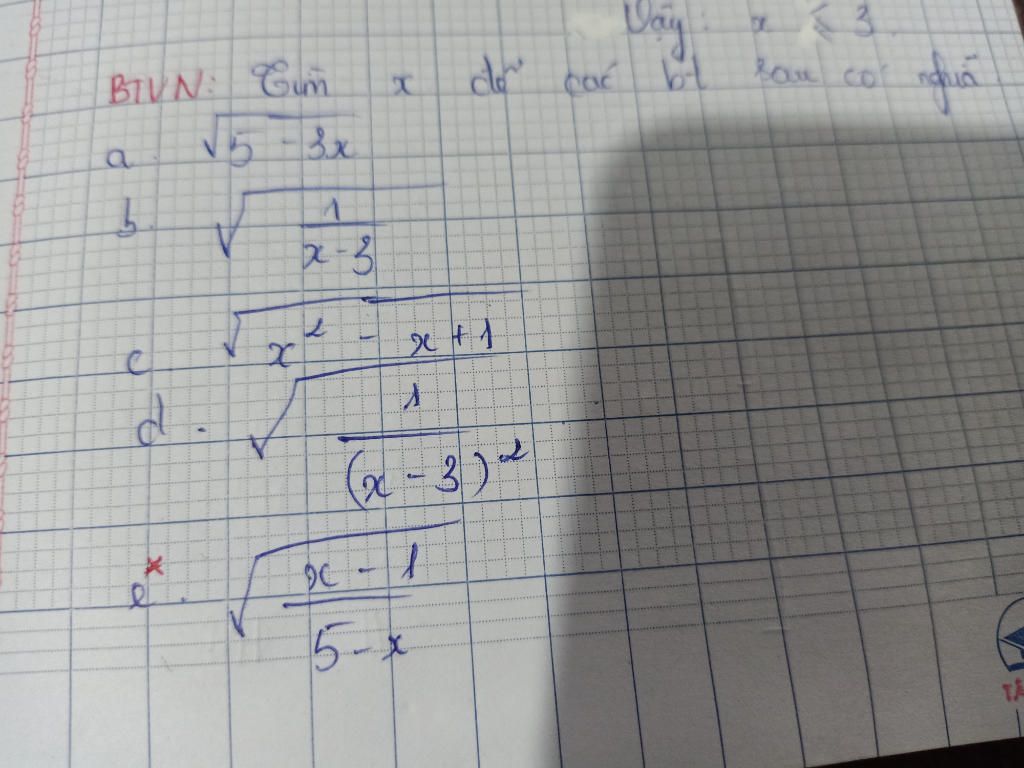 Vậy: x ≤ 3.
BTVN: Tìm x để các bt sau có nghĩa
a. √(5 - 3x)
b. √(1/(x-3))
c. √(x² - x + 1)
d. √(1/(x - 3)²)
e*. √((x - 1)/(5 - x))